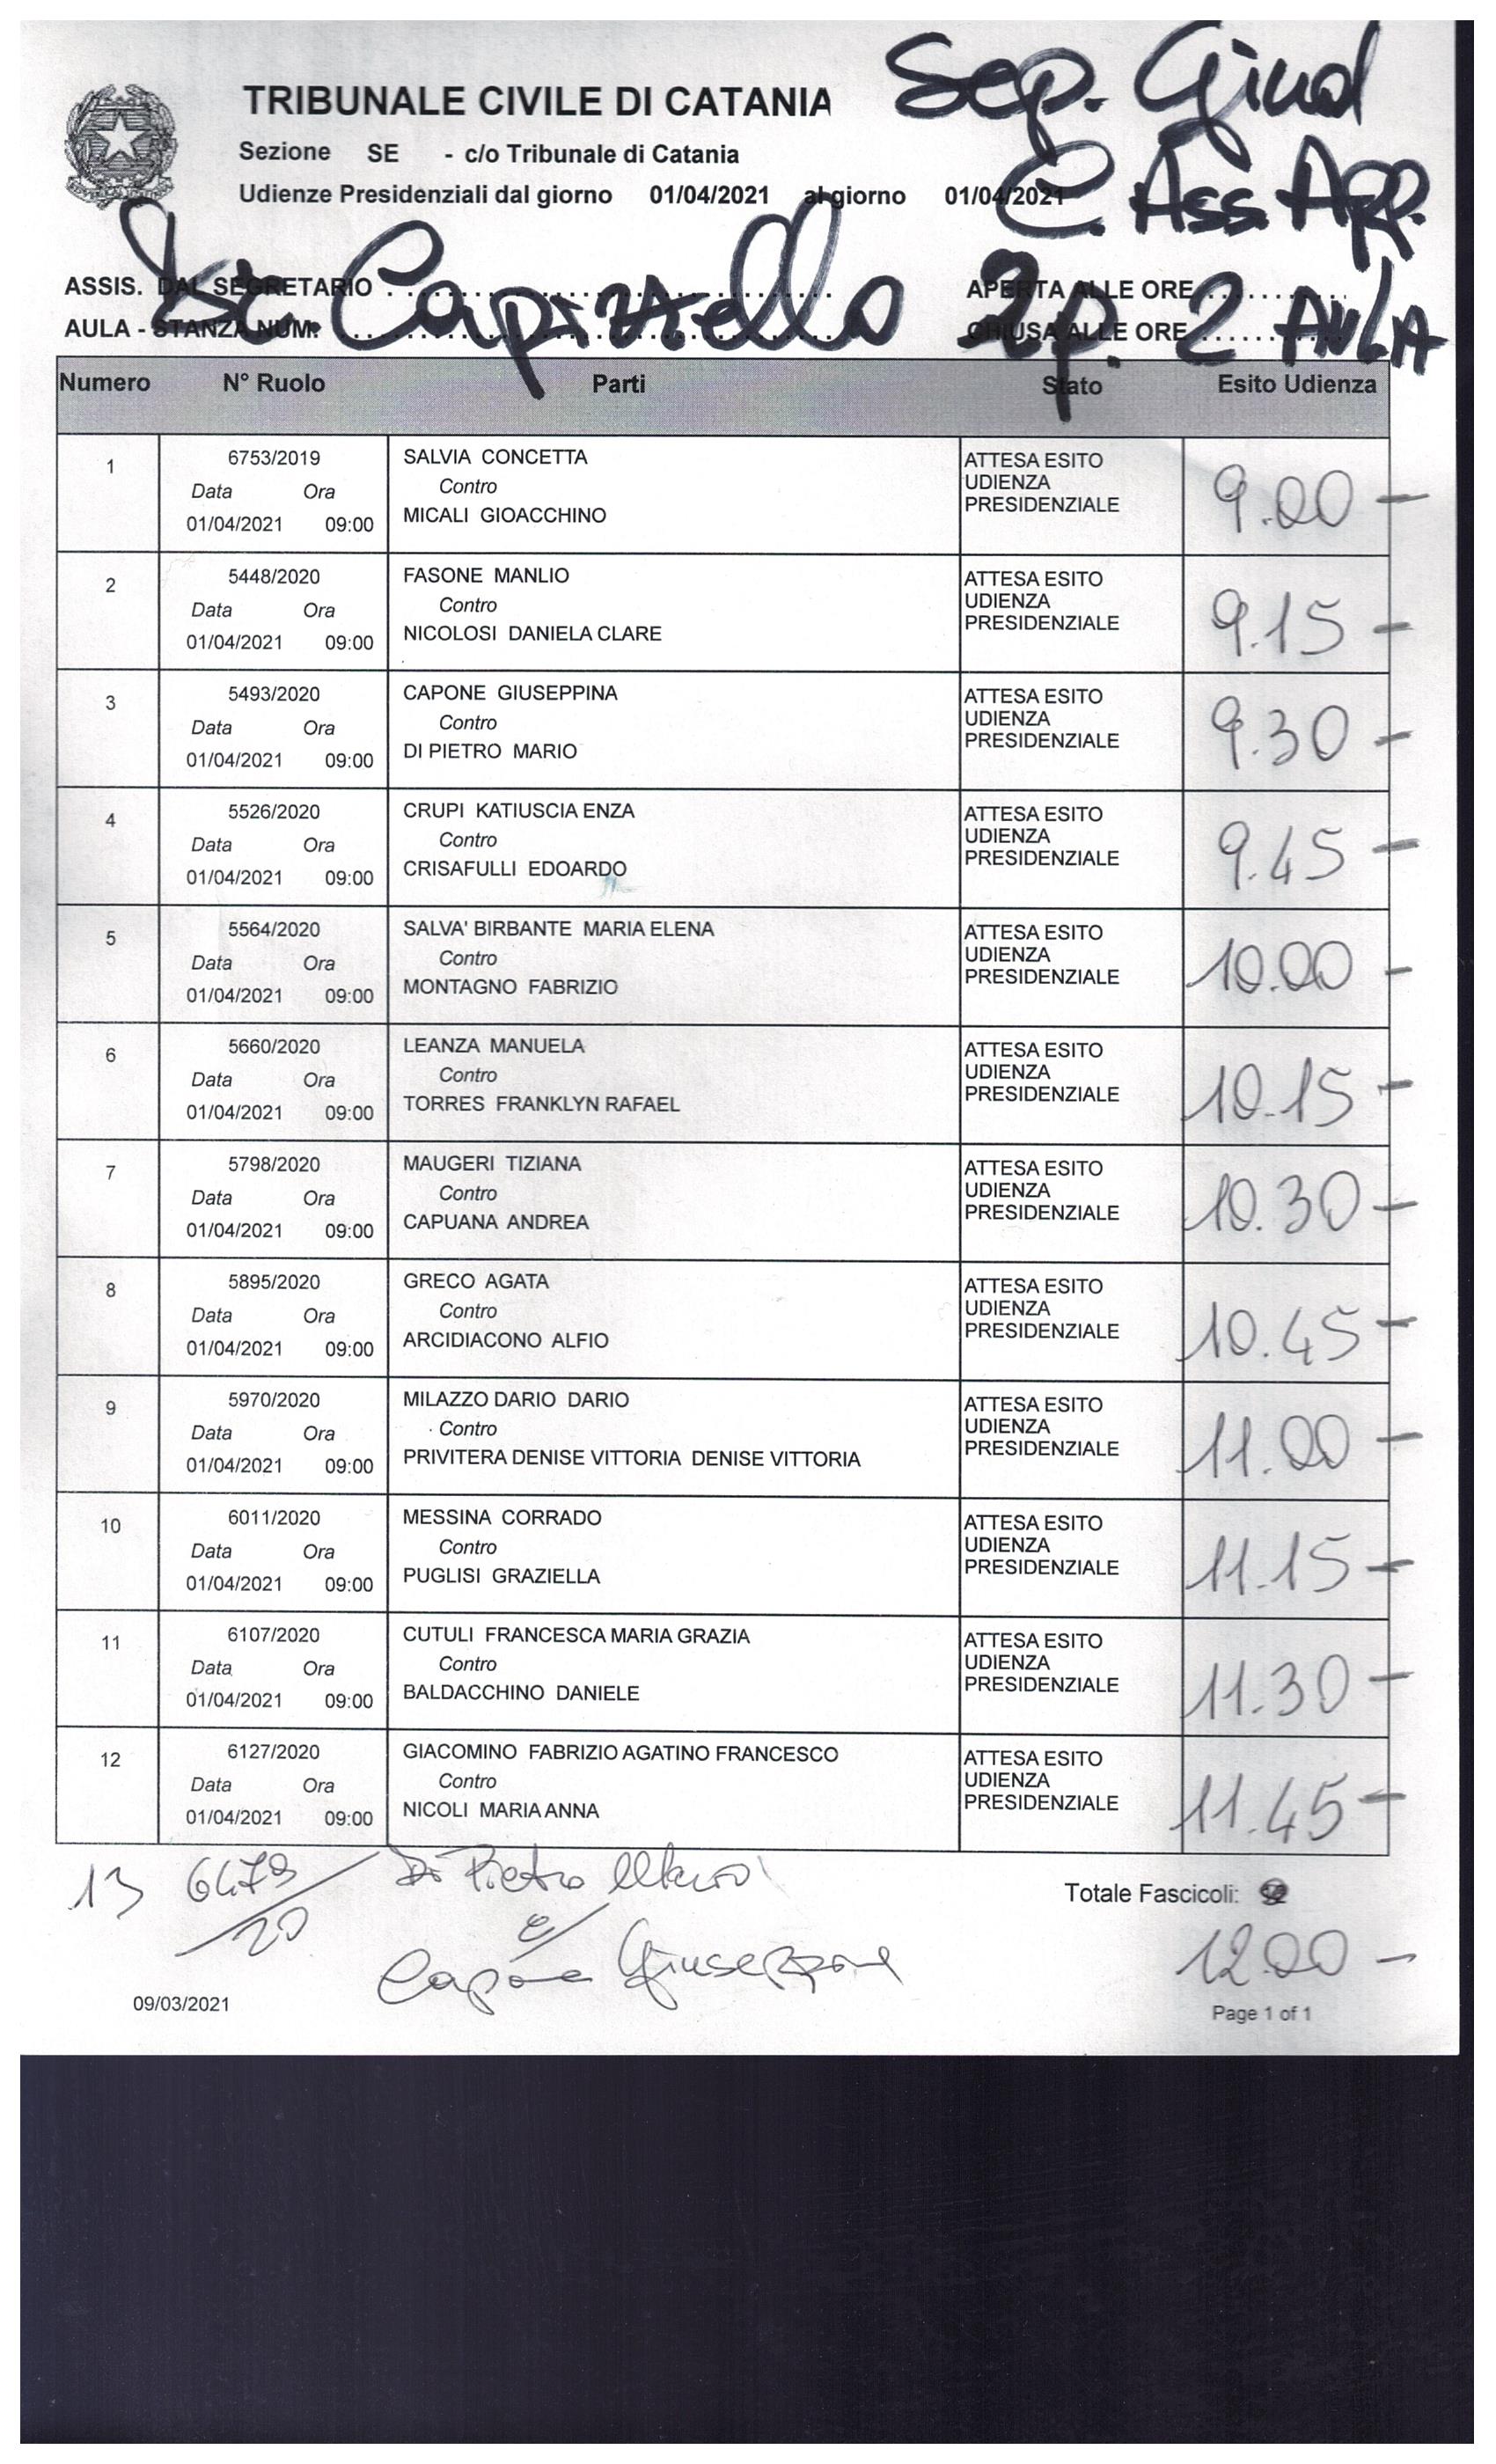 Sep. Giud
C. Ass. App.
TRIBUNALE CIVILE DI CATANIA
Sezione SE - c/o Tribunale di Catania
Udienze Presidenziali dal giorno 01/04/2021 al giorno 01/04/2021
ASSIS. DAL SEGRETARIO APERTA ALLE ORE
AULA - STANZA NUM: CHIUSA ALLE ORE
2 AULA
Numero N° Ruolo Parti Stato Esito Udienza
1 6753/2019 SALVIA CONCETTA ATTESA ESITO
Data Ora Contro UDIENZA 9.00 -
01/04/2021 09:00 MICALI GIOACCHINO PRESIDENZIALE
2 5448/2020 FASONE MANLIO ATTESA ESITO
Data Ora Contro UDIENZA 9.15 -
01/04/2021 09:00 NICOLOSI DANIELA CLARE PRESIDENZIALE
3 5493/2020 CAPONE GIUSEPPINA ATTESA ESITO
Data Ora Contro UDIENZA 9.30 -
01/04/2021 09:00 DI PIETRO MARIO PRESIDENZIALE
4 5526/2020 CRUPI KATIUSCIA ENZA ATTESA ESITO
Data Ora Contro UDIENZA 9.45 -
01/04/2021 09:00 CRISAFULLI EDOARDO PRESIDENZIALE
5 5564/2020 SALVA' BIRBANTE MARIA ELENA ATTESA ESITO
Data Ora Contro UDIENZA 10.00 -
01/04/2021 09:00 MONTAGNO FABRIZIO PRESIDENZIALE
6 5660/2020 LEANZA MANUELA ATTESA ESITO
Data Ora Contro UDIENZA 10.15 -
01/04/2021 09:00 TORRES FRANKLYN RAFAEL PRESIDENZIALE
7 5798/2020 MAUGERI TIZIANA ATTESA ESITO
Data Ora Contro UDIENZA 10.30 -
01/04/2021 09:00 CAPUANA ANDREA PRESIDENZIALE
8 5895/2020 GRECO AGATA ATTESA ESITO
Data Ora Contro UDIENZA 10.45 -
01/04/2021 09:00 ARCIDIACONO ALFIO PRESIDENZIALE
9 5970/2020 MILAZZO DARIO DARIO ATTESA ESITO
Data Ora Contro UDIENZA 11.00 -
01/04/2021 09:00 PRIVITERA DENISE VITTORIA DENISE VITTORIA PRESIDENZIALE
10 6011/2020 MESSINA CORRADO ATTESA ESITO
Data Ora Contro UDIENZA 11.15 -
01/04/2021 09:00 PUGLISI GRAZIELLA PRESIDENZIALE
11 6107/2020 CUTULI FRANCESCA MARIA GRAZIA ATTESA ESITO
Data Ora Contro UDIENZA 11.30 -
01/04/2021 09:00 BALDACCHINO DANIELE PRESIDENZIALE
12 6127/2020 GIACOMINO FABRIZIO AGATINO FRANCESCO ATTESA ESITO
Data Ora Contro UDIENZA 11.45 -
01/04/2021 09:00 NICOLI MARIA ANNA PRESIDENZIALE
13 6479/20 Di Pietro
Totale Fascicoli:
c/
Capone 12.00 -
09/03/2021 Page 1 of 1